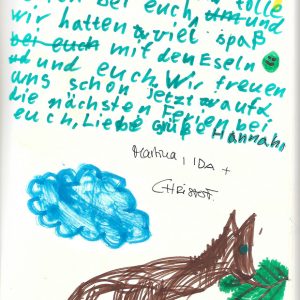 bei euch, tolle
um und
wir hatten viel spaß
bei euch mit den Eseln
und euch, Wir freuen
uns schon jetzt auf d
die nächsten Ferien bei
euch, Liebe Grüße Hannah,
Martina, IDA +